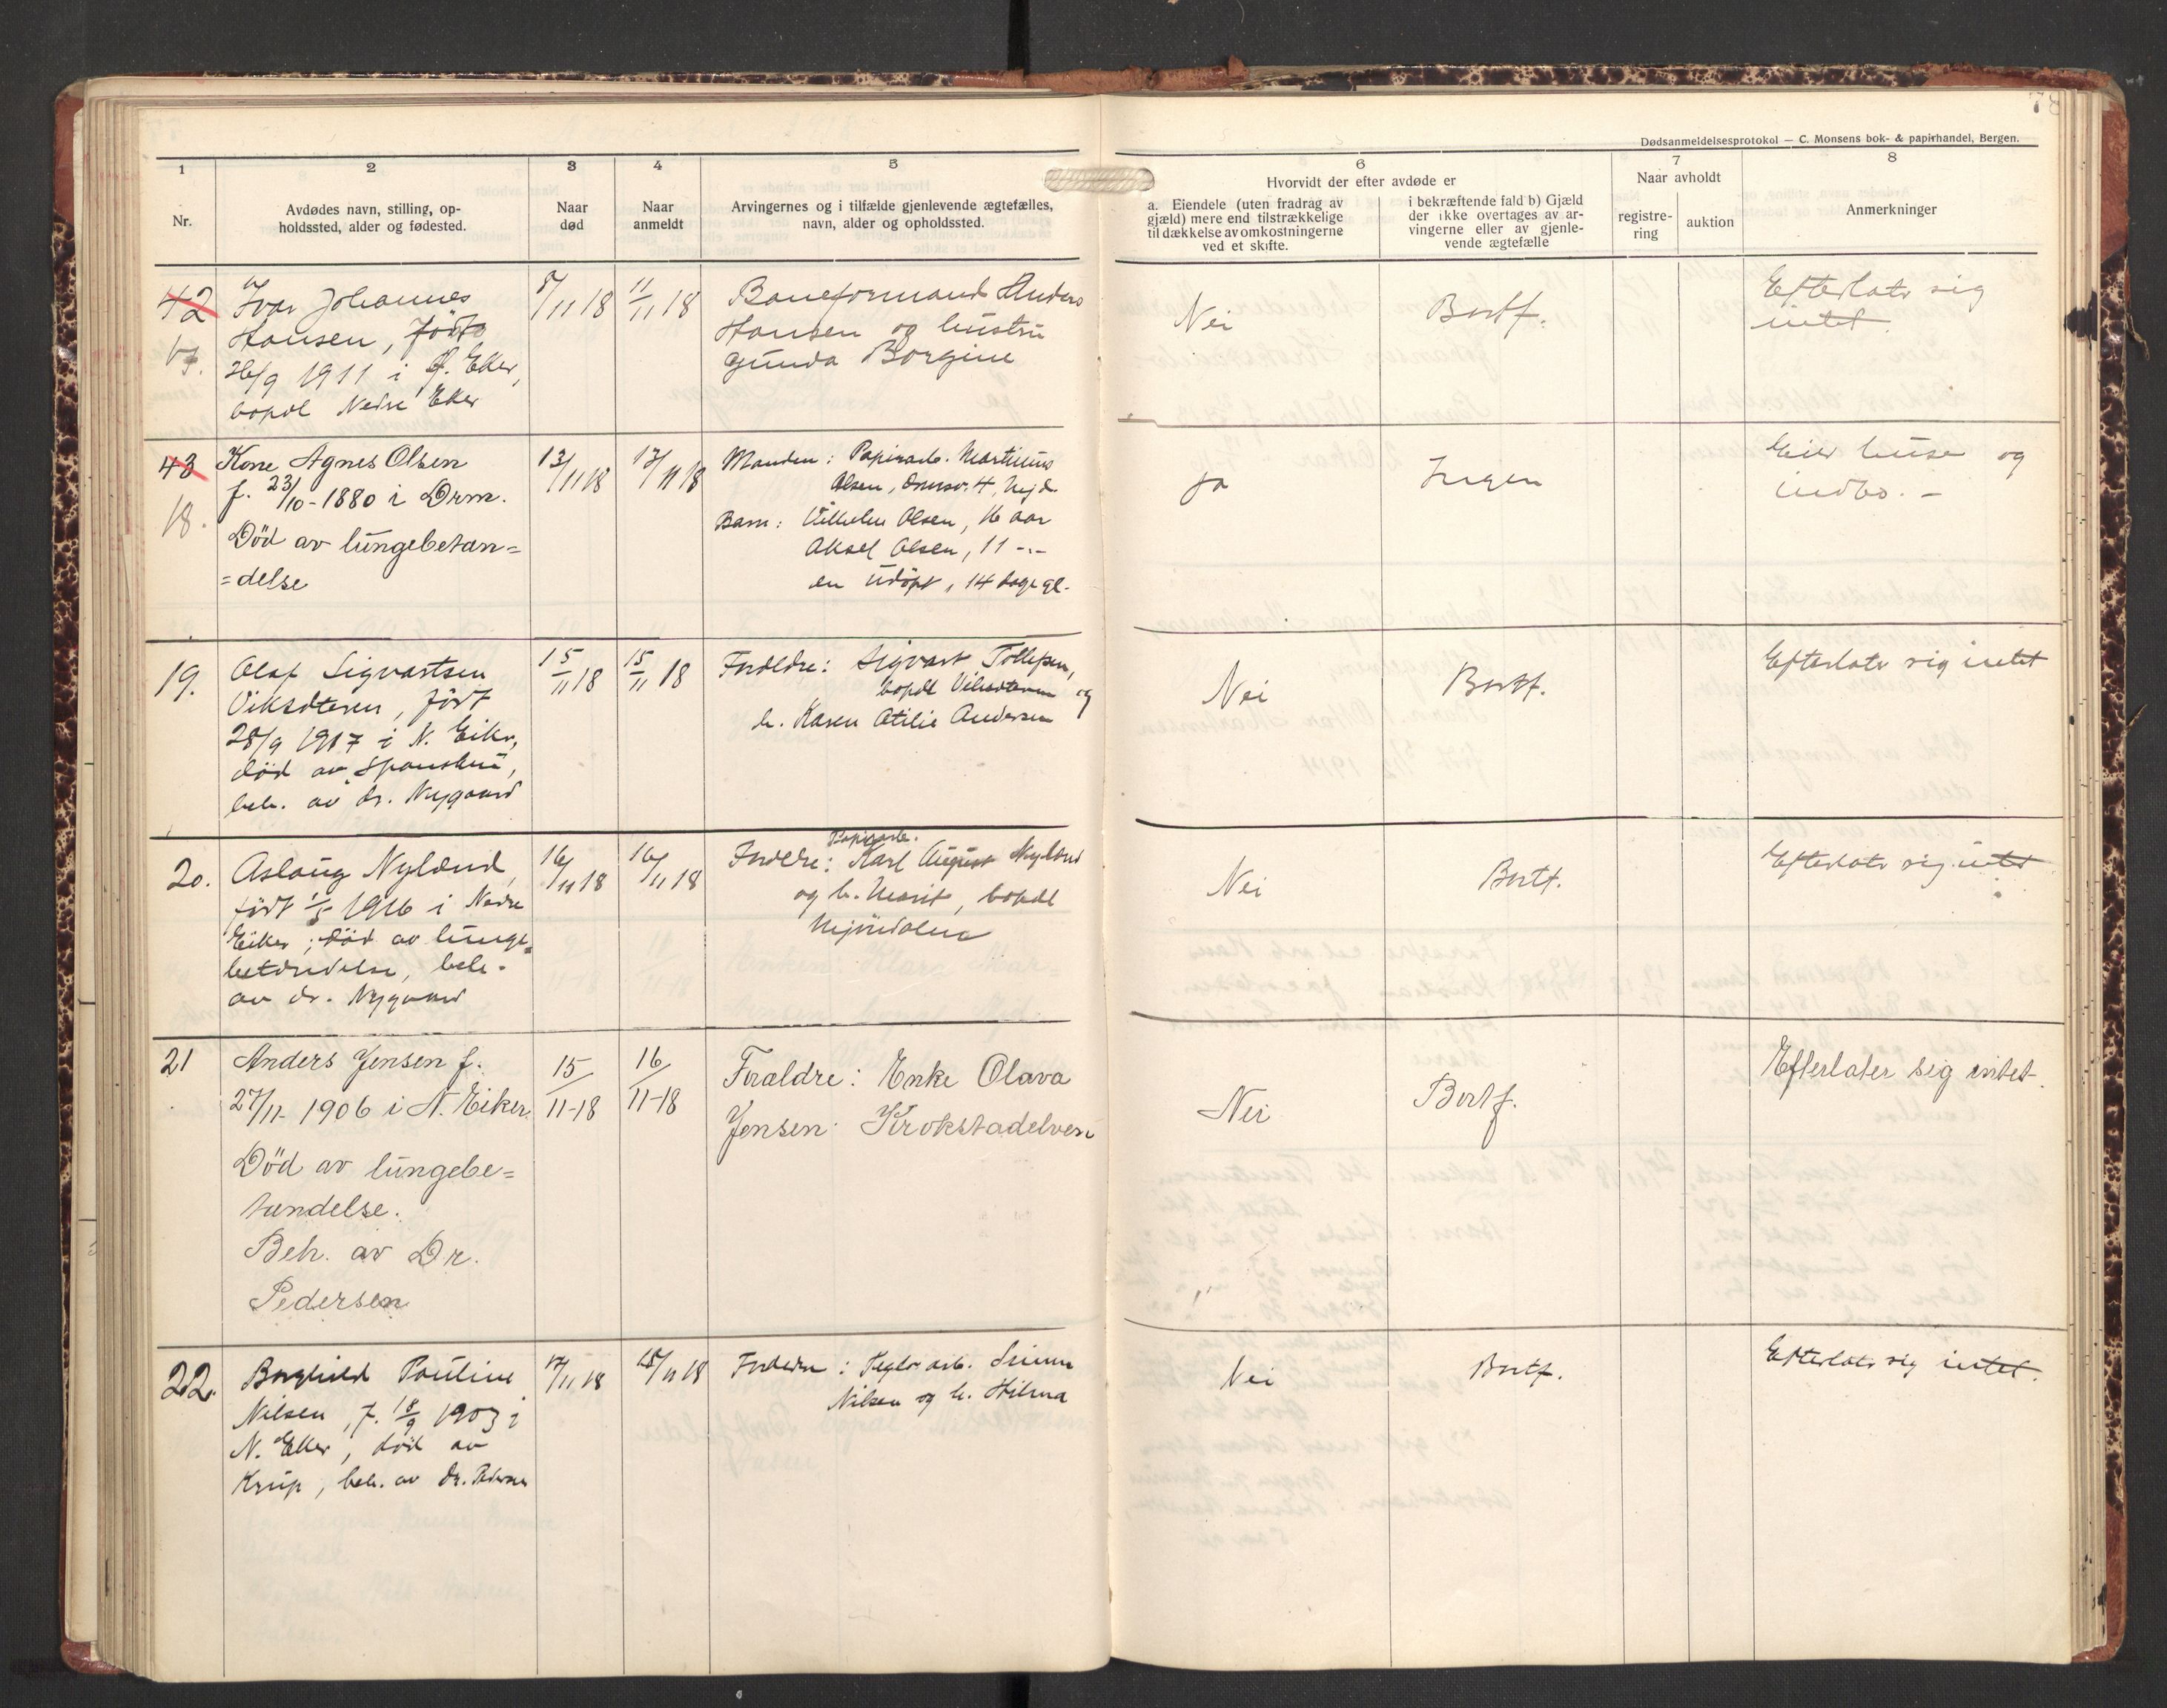 78
Dødsanmeldelsesprotokol — C. Monsens bok- & papirhandel, Bergen.
1
Nr.
2
Avdødes navn, stilling, op-
holdssted, alder og fødested.
3
Naar
død
4
Naar
anmeldt
5
Arvingernes og i tilfælde gjenlevende ægtefælles,
navn, alder og opholdssted.
6
Hvorvidt der efter avdøde er
a. Eiendele (uten fradrag av
gjæld) mere end tilstrækkelige
til dækkelse av omkostningerne
ved et skifte.
i bekræftende fald b) Gjæld
der ikke overtages av ar-
vingerne eller av gjenle-
vende ægtefælle
7
Naar avholdt
registre-
ring
auktion
8
Anmerkninger
42
17.
Ivar Johannes
Hansen, född
26/9 1911 i Ø. Eker,
bopdl Nedre Eker
8/11 18
11/11 18
Baneformand Anders
Hansen og hustru
Gunda Borgine
Nei
Bortf.
Efterlate sig
intet.
43
18.
Kone Agnes Olsen
f. 23/10-1880 i Drm.
Död av lungebetæn=
=delse
13/11 18
13/11 18
Manden: Papirarb. Martinius
Olsen, 4, Mjd.
Barn: Vilhelm Olsen, 16 aar
Aksel Olsen, 11 -"-
en udöpt, 14 dage gl.
Ja
Ingen
Eier huse og
indbo. -
19.
Olaf Sigvartsen
Vikseteren, født
28/9 1917 i N. Eiker,
död av Spanskesyke,
beh. av dr. Nygaard
15/11 18
15/11 18
Foreldre: Sigvart Tollefsen,
bopdl Vikseteren og
h. Karen Otilie Andersen
Nei
Bortf.
Efterlate sig intet
20.
Aslaug Nylænd,
født 1/5 1916 i Nedre
Eiker; død av lunge=
betændelse, beh.
av dr. Nygaard
16/11 18
16/11 18
Papirarb.
Foreldre: Karl August Nylænd
og h. Marit, bopdl
Mjøndalen
Nei
Bortf.
Efterlate sig intet
21
Anders Jensen f.
27/11- 1906 i N. Eiker.
Död av lungebe=
tændelse.
Beh. av Dr.
Pedersen
15/11-18
16/11-18
Foraldre: Enke Olava
Jensen Krokstadelven
Nei
Bortf.
Efterlater sig intet.
22.
Borghild Pauline
Nilsen, f. 18/9 1903 i
N. Eker, død av
Krup, beh. av Dr. Pedersen
17/11 18
18/11 18
Foreldre: Teglv. arb. Simen
Nilsen og h. Hilma
Nei
Bortf.
Efterlate sig intet.